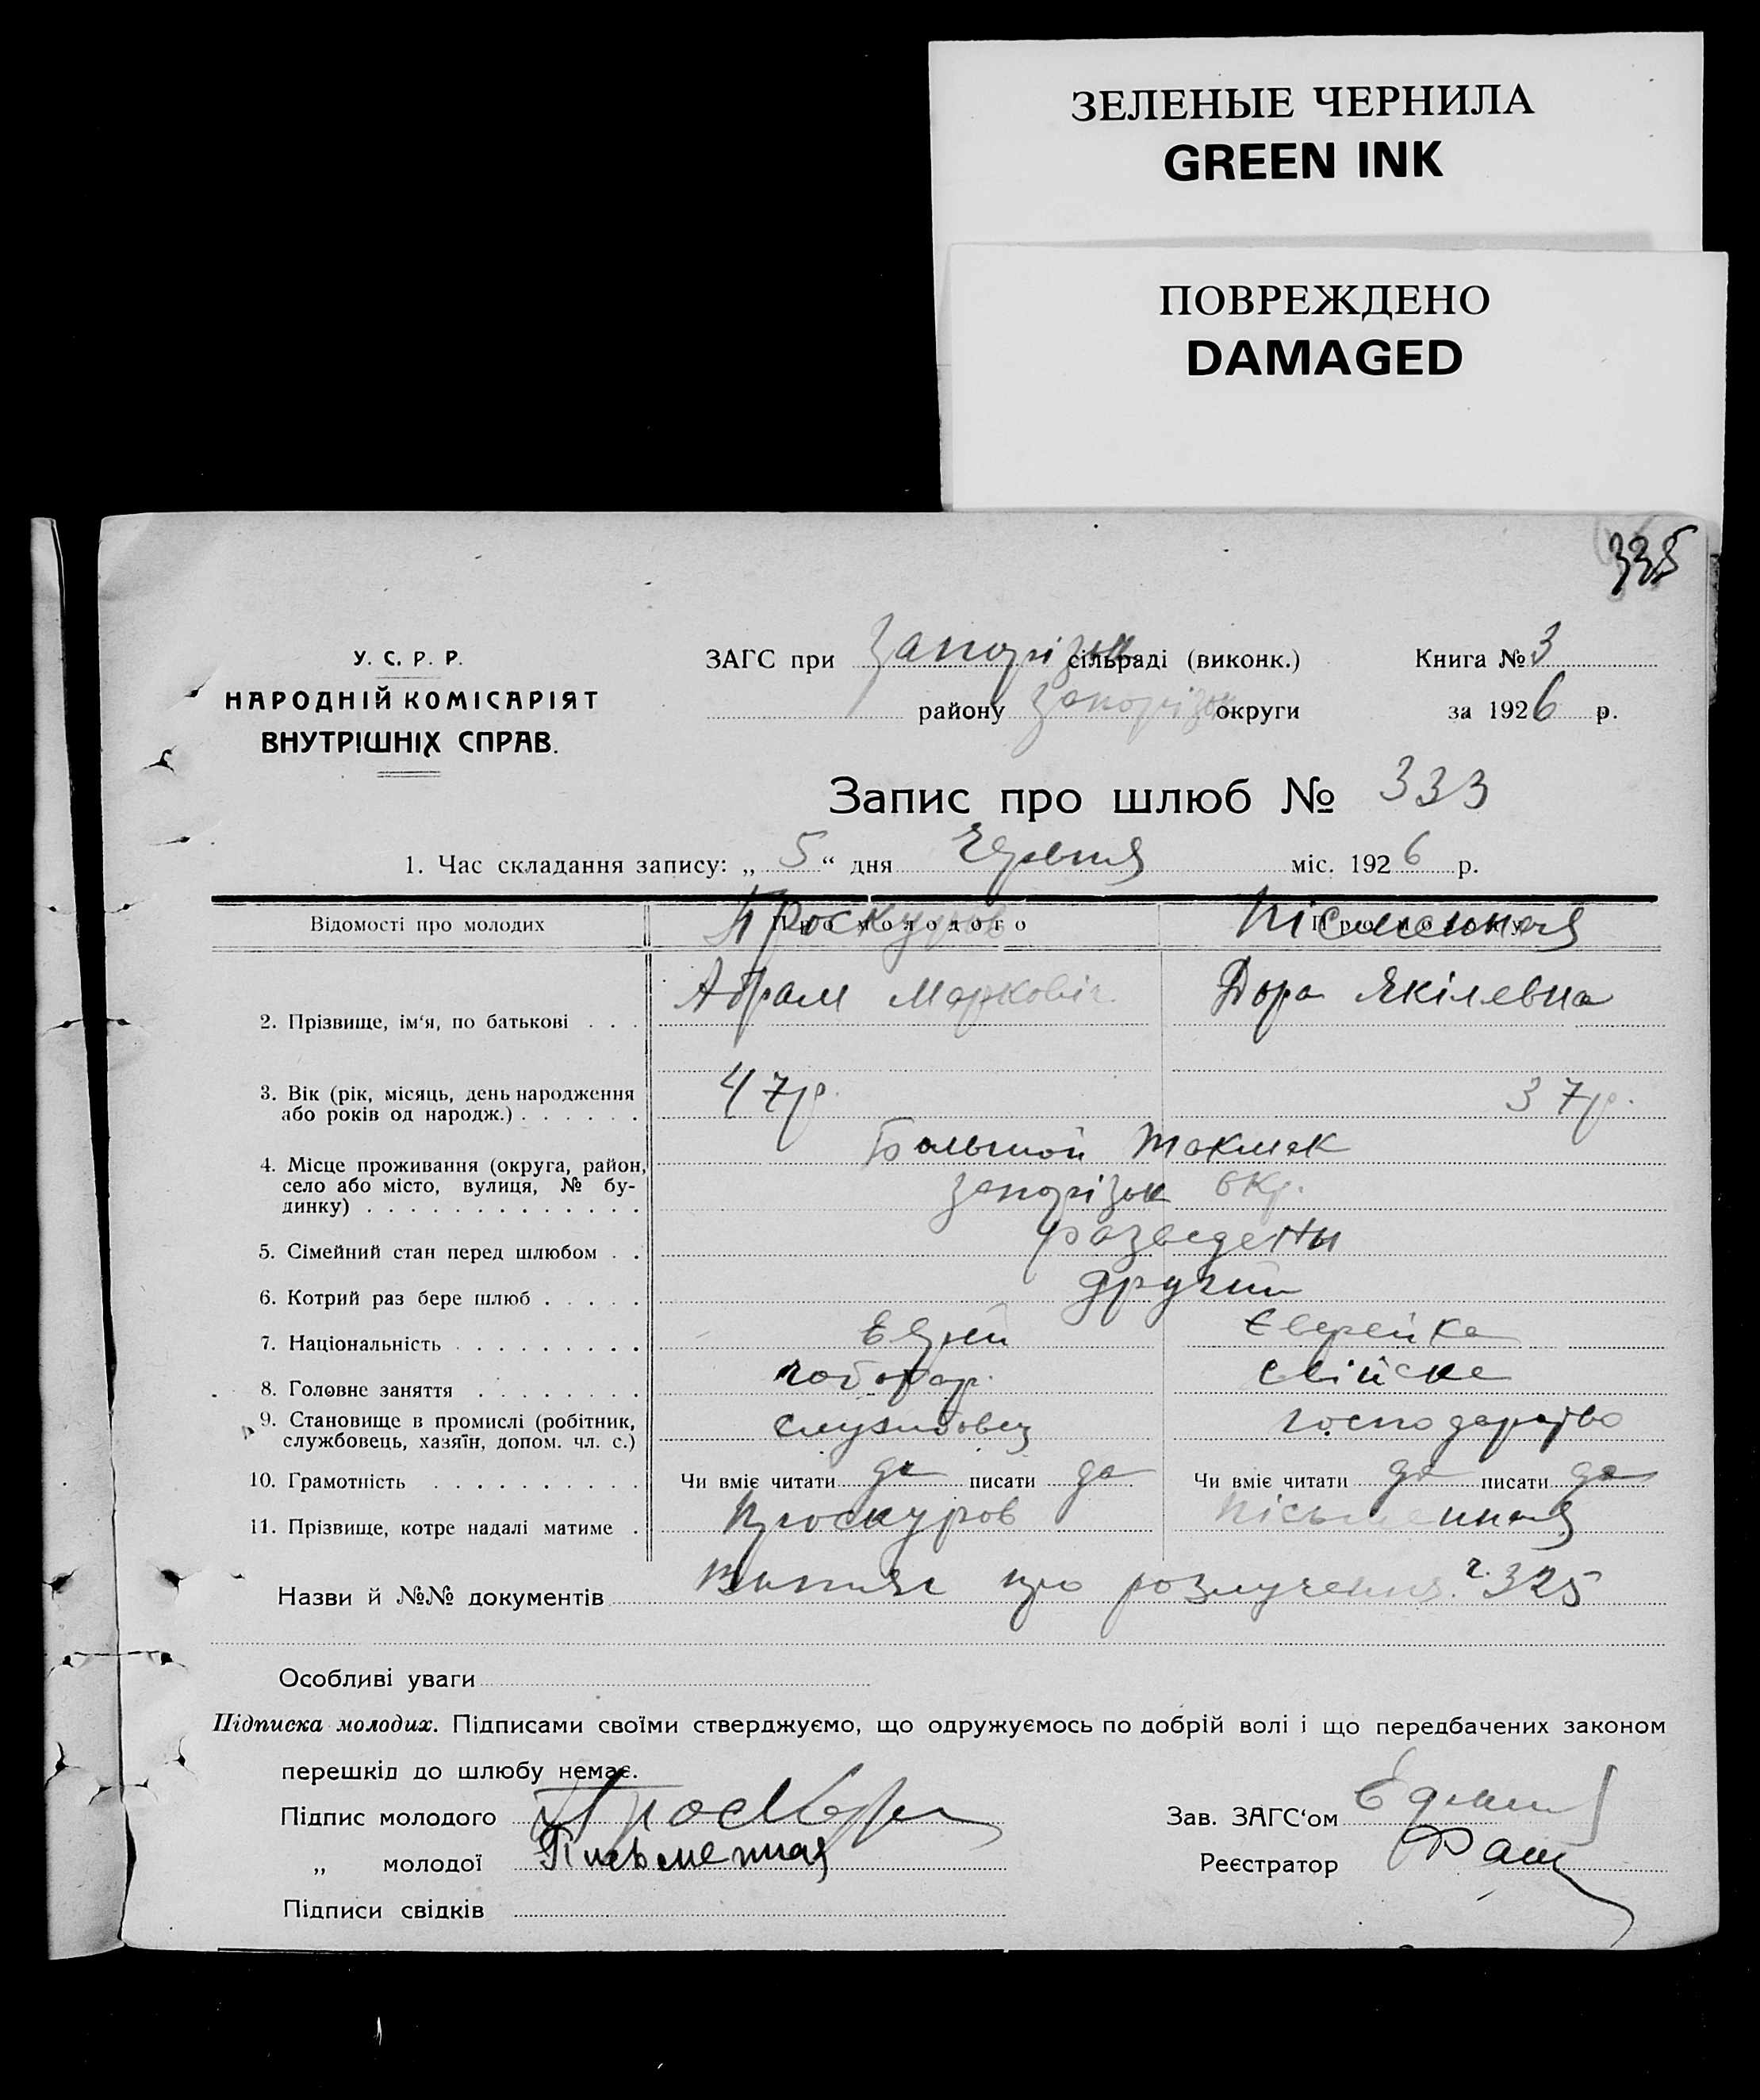 ЗЕЛЕНЫЕ ЧЕРНИЛА
GREEN INK
ПОВРЕЖДЕНО
DAMAGED
335
У. С. Р. Р.
НАРОДНІЙ КОМІСАРІЯТ
ВНУТРІШНІХ СПРАВ.
ЗАГС при Запорізьк сільраді (виконк.) Книга № 3
району Запорізьк округи за 1926 р.
Запис про шлюб № 333
1. Час складання запису: „ 5 “ дня Червня міс. 1926 р.
Відомості про молодих Про молодого Про молоду
Проскуров Пісменная
2. Прізвище, ім‘я, по батькові . . . Абрам Маркович Дора Якілевна
3. Вік (рік, місяць, день народження
або років од народж.) . . . . . . 47 р. 37 р.
4. Місце проживання (округа, район, Большой Токмак
село або місто, вулиця, № бу-
динку) . . . . . . . . . . . . . Запорізьк окр.
5. Сімейний стан перед шлюбом . . разведены
6. Котрий раз бере шлюб . . . . . другий
7. Національність . . . . . . . . . Еврей Єврейка
8. Головне заняття . . . . . . . . чоботар. свійске
9. Становище в промислі (робітник,
службовець, хазяїн, допом. чл. с.) службовец господарство
10. Грамотність . . . . . . . . . . Чи вміє читати да писати да Чи вміє читати да писати да
11. Прізвище, котре надалі матиме . Проскуров Пісьменная
Назви й №№ документів Витяг про розлучення. ч. 325
Особливі уваги
Підписка молодих. Підписами своїми стверджуємо, що одружуємось по добрій волі і що передбачених законом
перешкід до шлюбу немає.
Підпис молодого Зав. ЗАГС‘ом
„ молодої Письменная Реєстратор
Підписи свідків